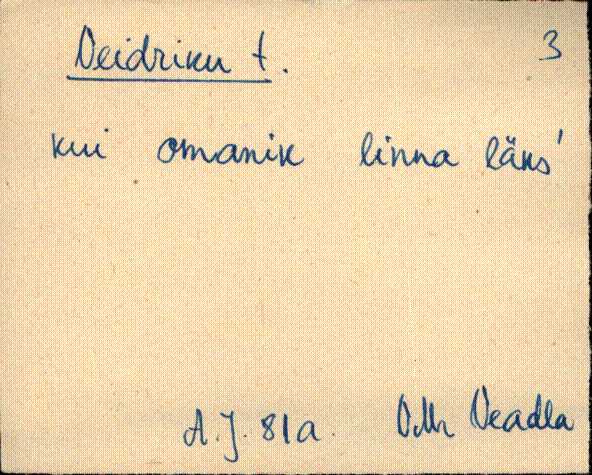 Veidriku t. 3
kui omanik linna läks'
A.J. 81a. VMr Veadla